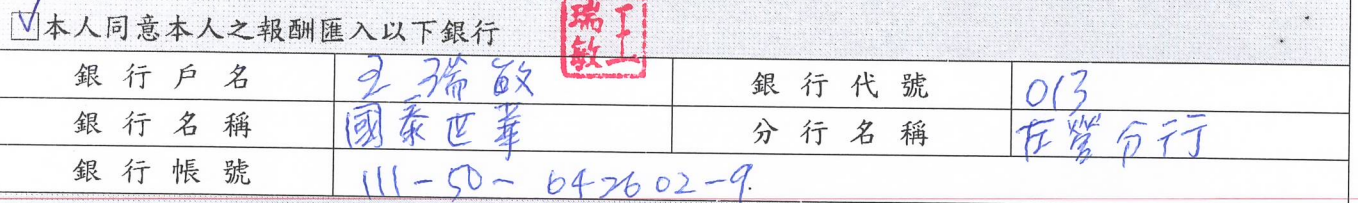 ☑本人同意本人之報酬匯入以下銀行
王瑞敏
銀行戶名 王瑞敏 銀行代號 013
銀行名稱 國泰世華 分行名稱 左營分行
銀行帳號 111-50-042602-9.